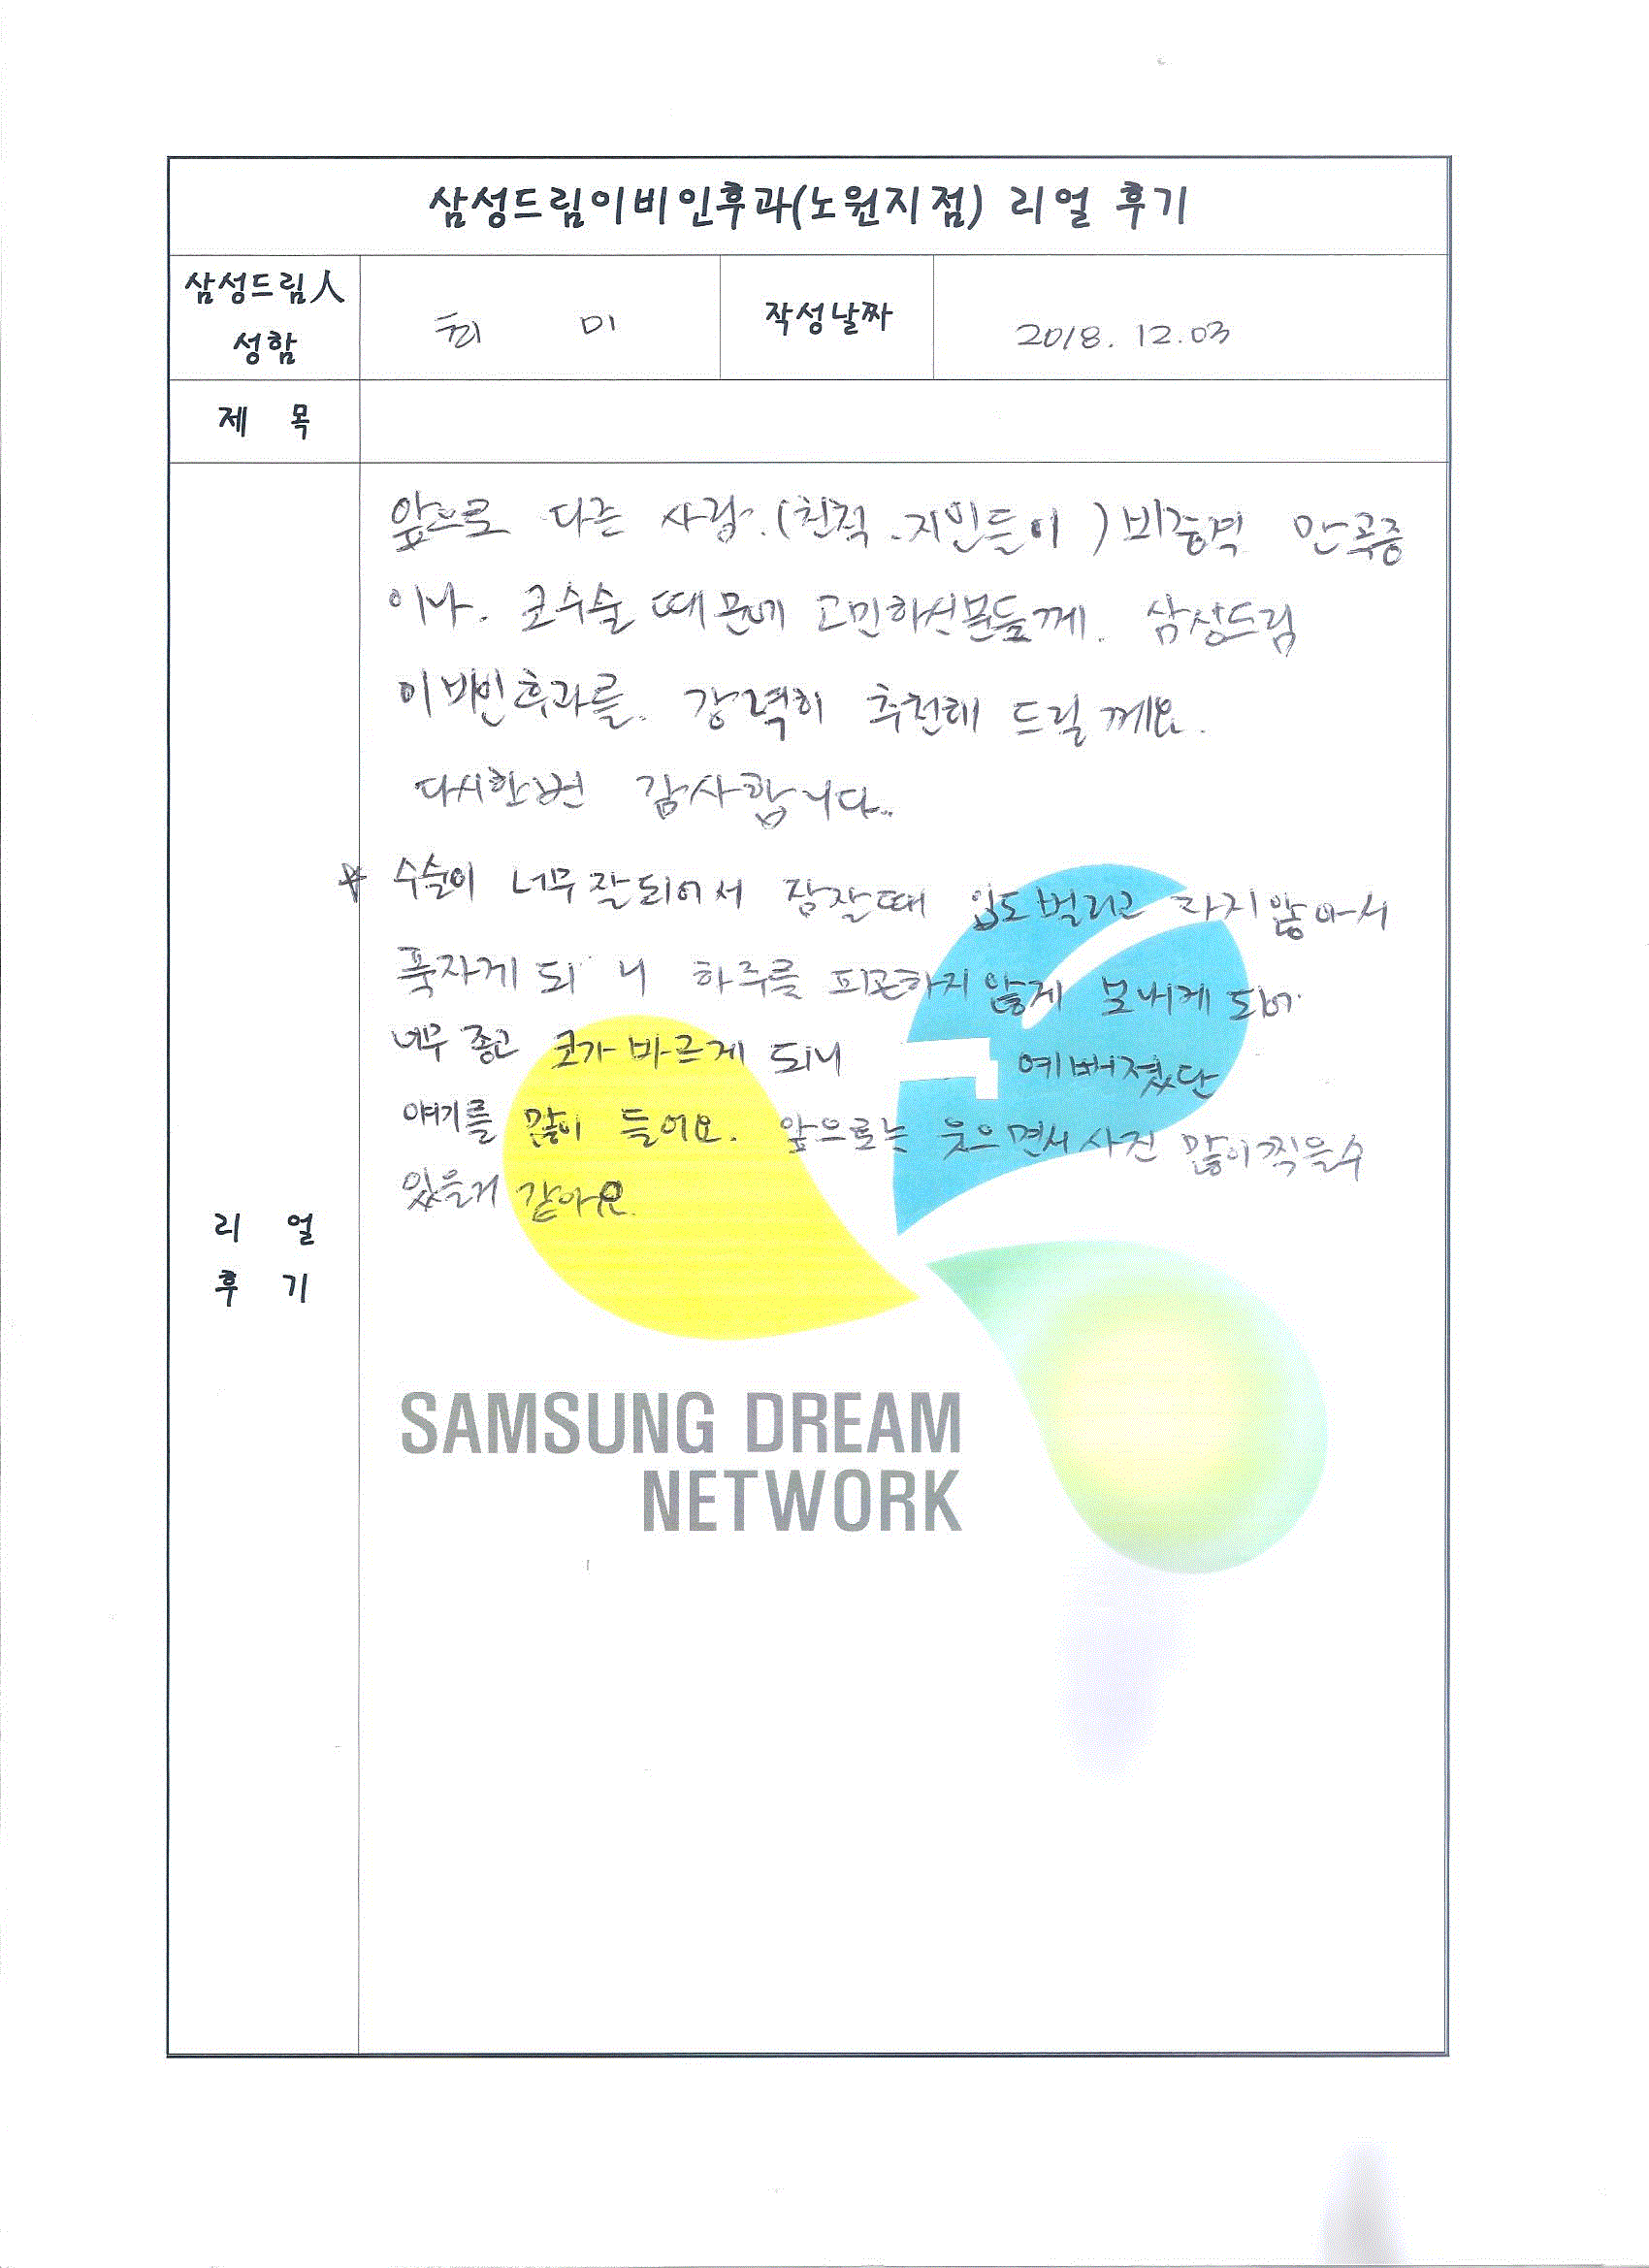 삼성드림이비인후과(노원지점) 리얼 후기
삼성드림人
성함
최 미
작성날짜
2018. 12.03
제 목
앞으로 다른 사람.(친척.지인들이) 비중격 만곡증
이나. 코수술 때문에 고민하신분들께. 삼성드림
이비인후과를. 강력히 추천해 드릴께요.
다시한번 감사합니다..
* 수술이 너무 잘되어서 잠잘때 입도벌리고 자지않아서
푹자게 되니 하루를 피곤하지않게 보내게 되어
너무 좋고 코가 바르게 되니 예뻐졌단
얘기를 많이 들어요. 앞으로는 웃으면서 사진 많이찍을수
있을거 같아요.
리 얼
후 기
SAMSUNG DREAM
NETWORK